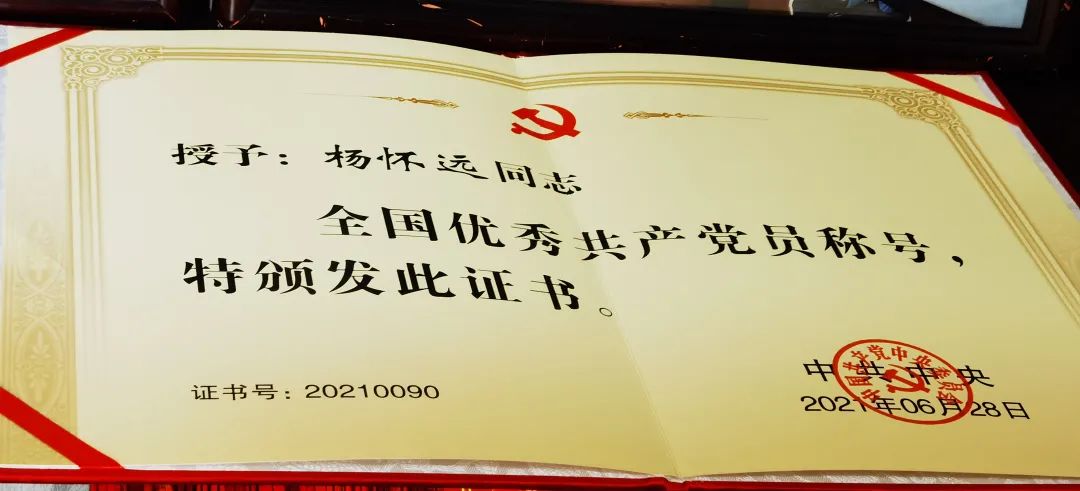 授予：杨怀远同志
全国优秀共产党员称号，
特颁发此证书。
证书号：20210090
中共中央
2021年06月28日
中国共产党中央委员会